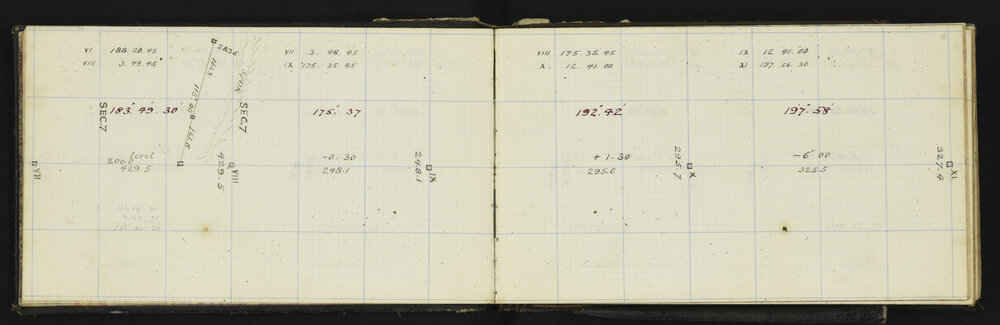 4
VI 188.20.45
VIII 3.49.45
283.6
VII. 3. 48. 45
IX 175. 35. 45
VIII 175. 35. 45
X. 12. 41. 00
IX 12. 41. 00
XI 197. 56. 30
SEC. 7
183° 49' 30"
SEC. 7
175° 37'
192° 42'
197° 58'
level
200.0
429.5
429.5
VII
VIII
-0. 30
248.1
248.1
IX
+ 1. 30
295.6
295.7
X
-6° 00
325.5
327.4
XI